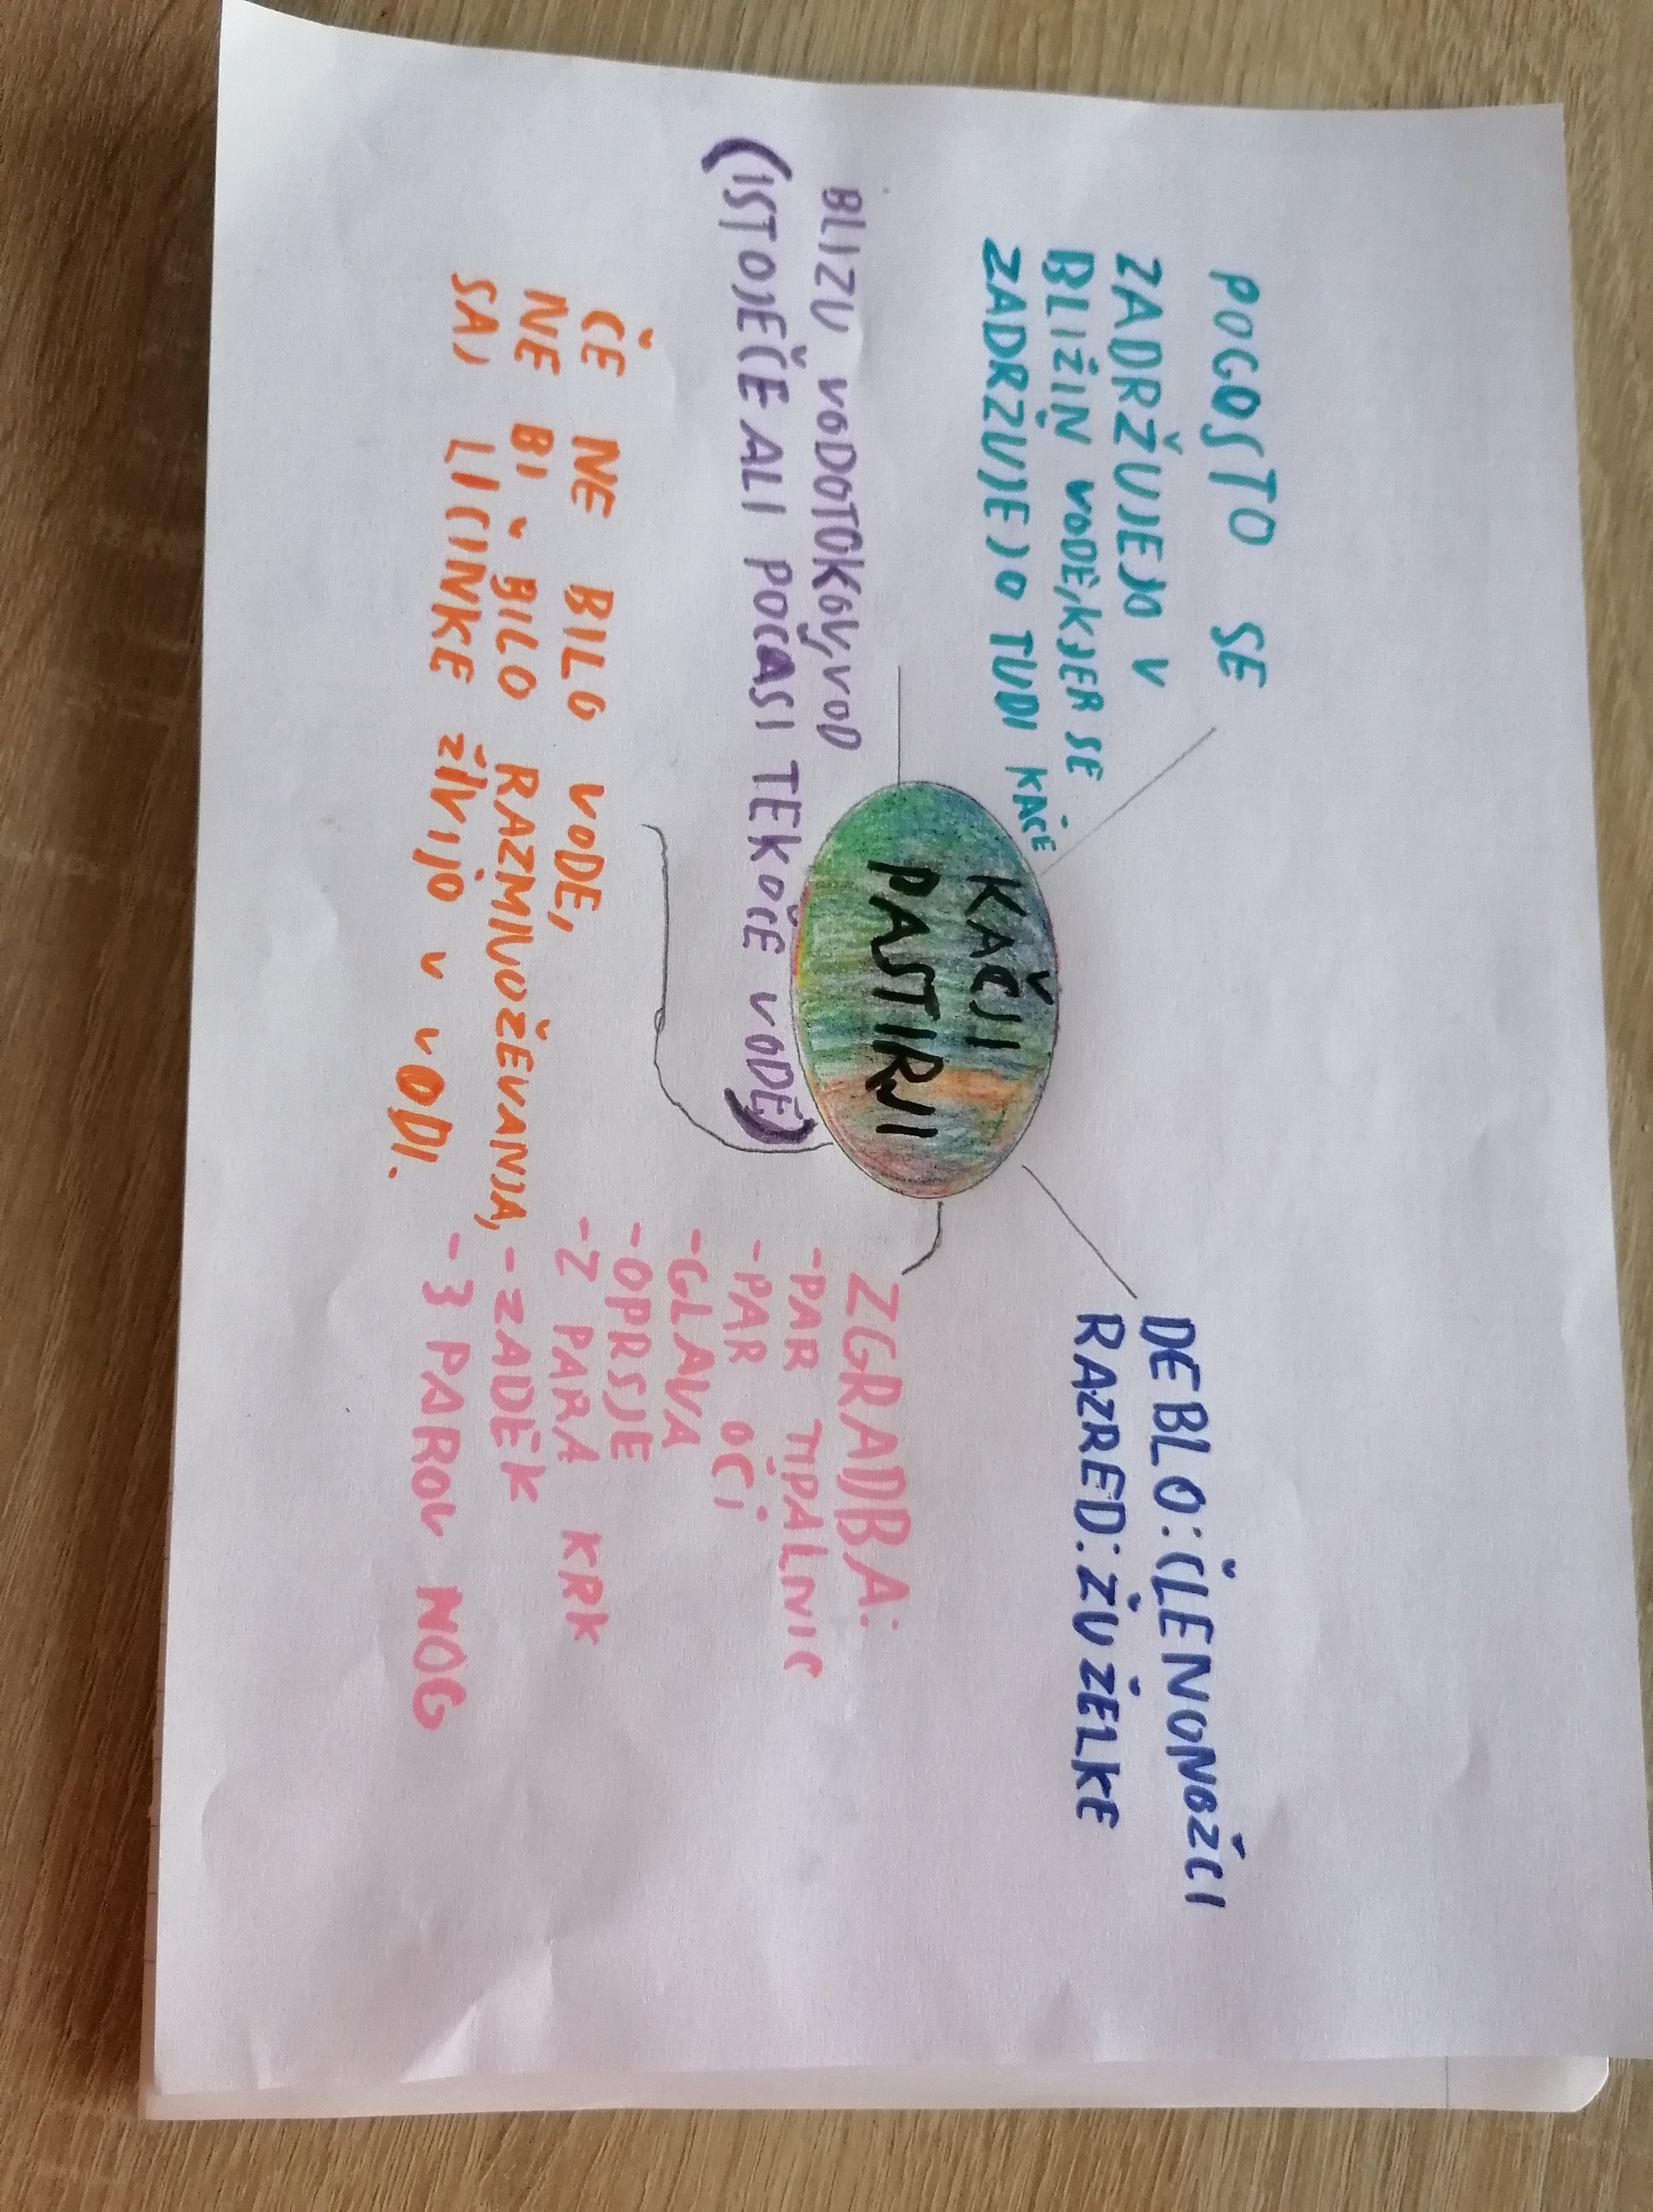 KAČJI
PASTIRJI
POGOSTO SE
ZADRŽUJEJO V
BLIŽIN VODE, KJER SE
ZADRŽUJEJO TUDI KAČE
BLIZU VODOTOKOV, VOD
(ISTOJEČE ALI POČASI TEKOČE VODE)
ČE NE BILO VODE,
NE BI BILO RAZMNOŽEVANJA,
SAJ LIČINKE ŽIVIJO V VODI.
DEBLO: ČLENONOŽCI
RAZRED: ŽUŽELKE
ZGRADBA:
-PAR TIPALNIC
-PAR OČI
-GLAVA
-OPRSJE
-2 PARA KRK
-ZADEK
-3 PAROV NOG